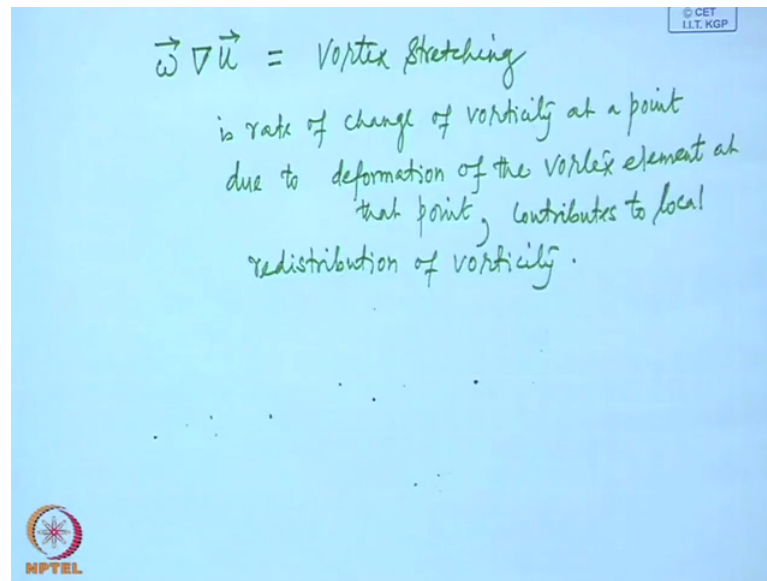 © CET
I.I.T. KGP
ω⃗ ∇ u⃗ = Vortex Stretching
is rate of change of vorticity at a point
due to deformation of the vortex element at
that point, contributes to local
redistribution of vorticity.
NPTEL